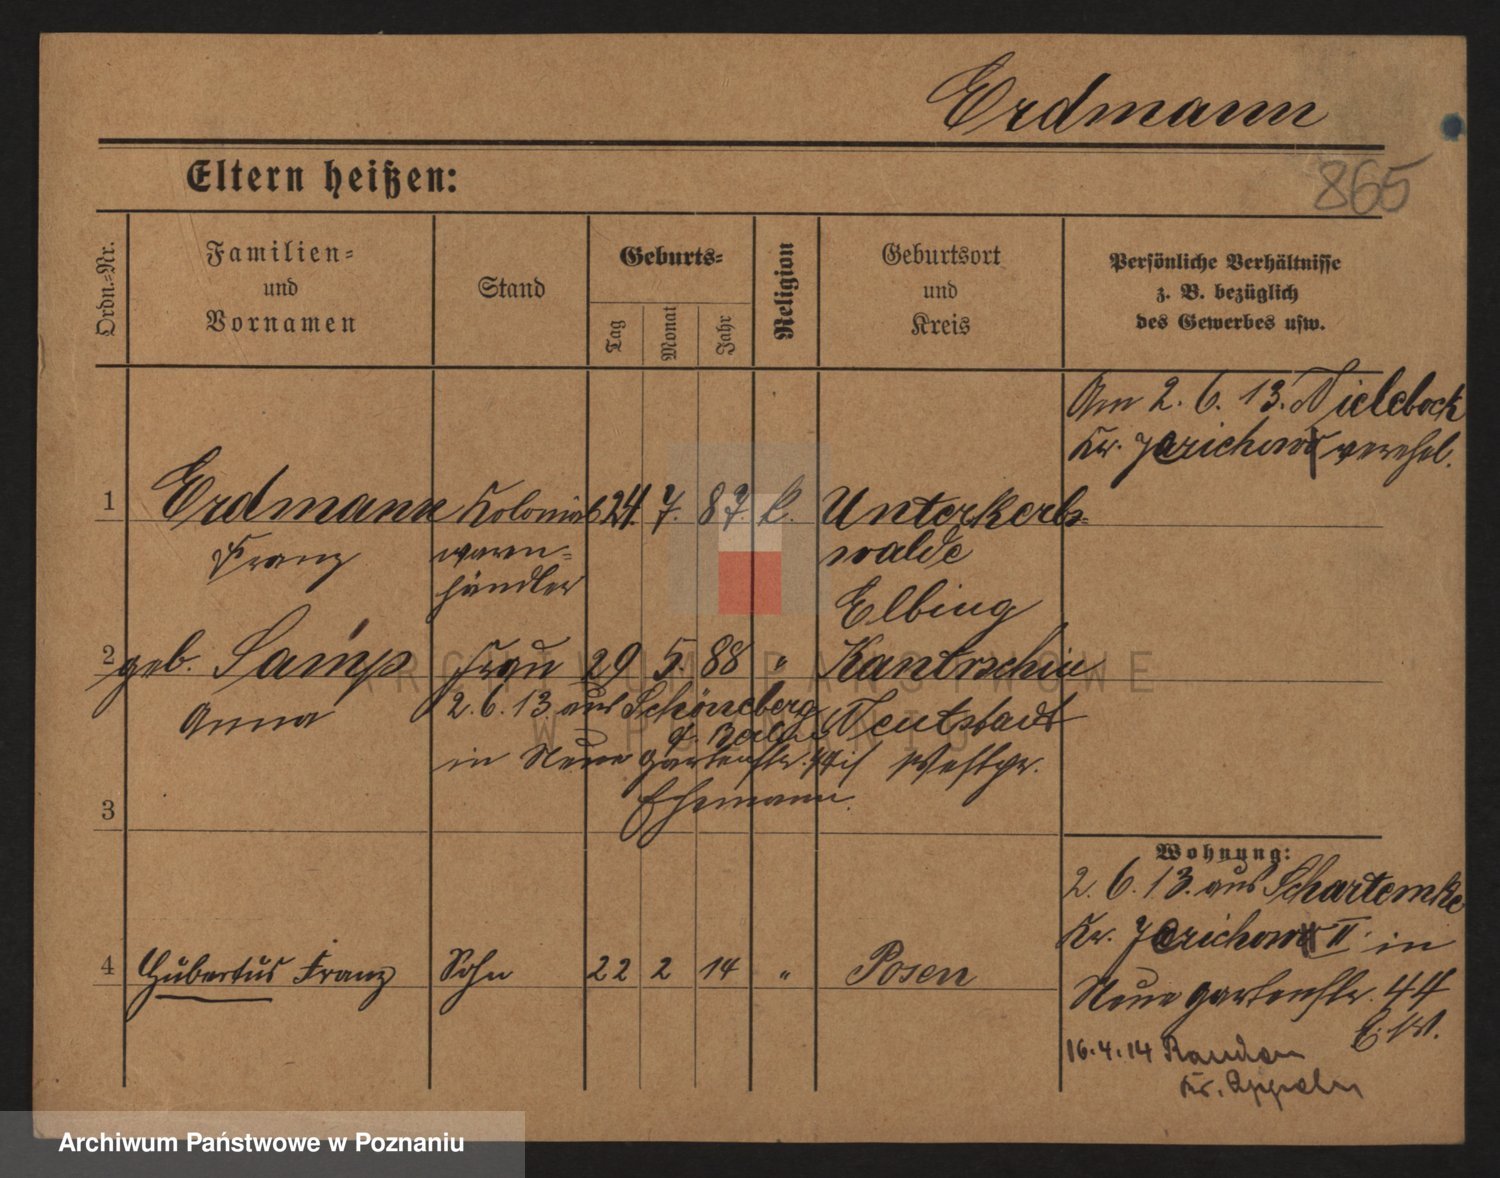 Erdmann
865
Eltern heißen:
Ordn.-Nr.
Familien-
und
Vornamen
Stand
Geburts-
Tag
Monat
Jahr
Religion
Geburtsort
und
Kreis
Persönliche Verhältnisse
z. B. bezüglich
des Gewerbes usw.
Am 2. 6. 13. Nielebock
Kr. Jerichow verehel.
1 Erdmann Kolonial 24. 7. 87. k. Unterkerbs-
Franz waren- walde
händler Elbing
2 geb. Samp Frau 29 5. 88 " Kantrschin
Anna 2. 6. 13 aus Schöneberg Neustadt
b. Berlin
in Neue Gartenstr. 44 Westpr.
Ehemann.
3
Wohnung:
2. 6. 13. aus Schartemke
Kr. Jerichow II in
Neue Gartenstr. 44
E. W.
4 Hubertus Franz Sohn 22 2 14 " Posen
16.4.14
Kr. Oppeln
ARCHIWUM PAŃSTWOWE
W POZNANIU
Archiwum Państwowe w Poznaniu